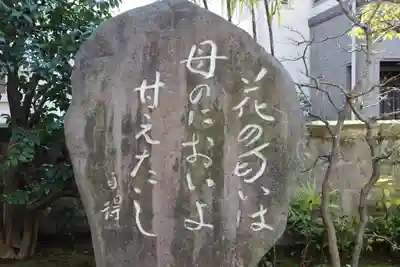 花の匂いは
母のにおいよ
甘えたし
自得